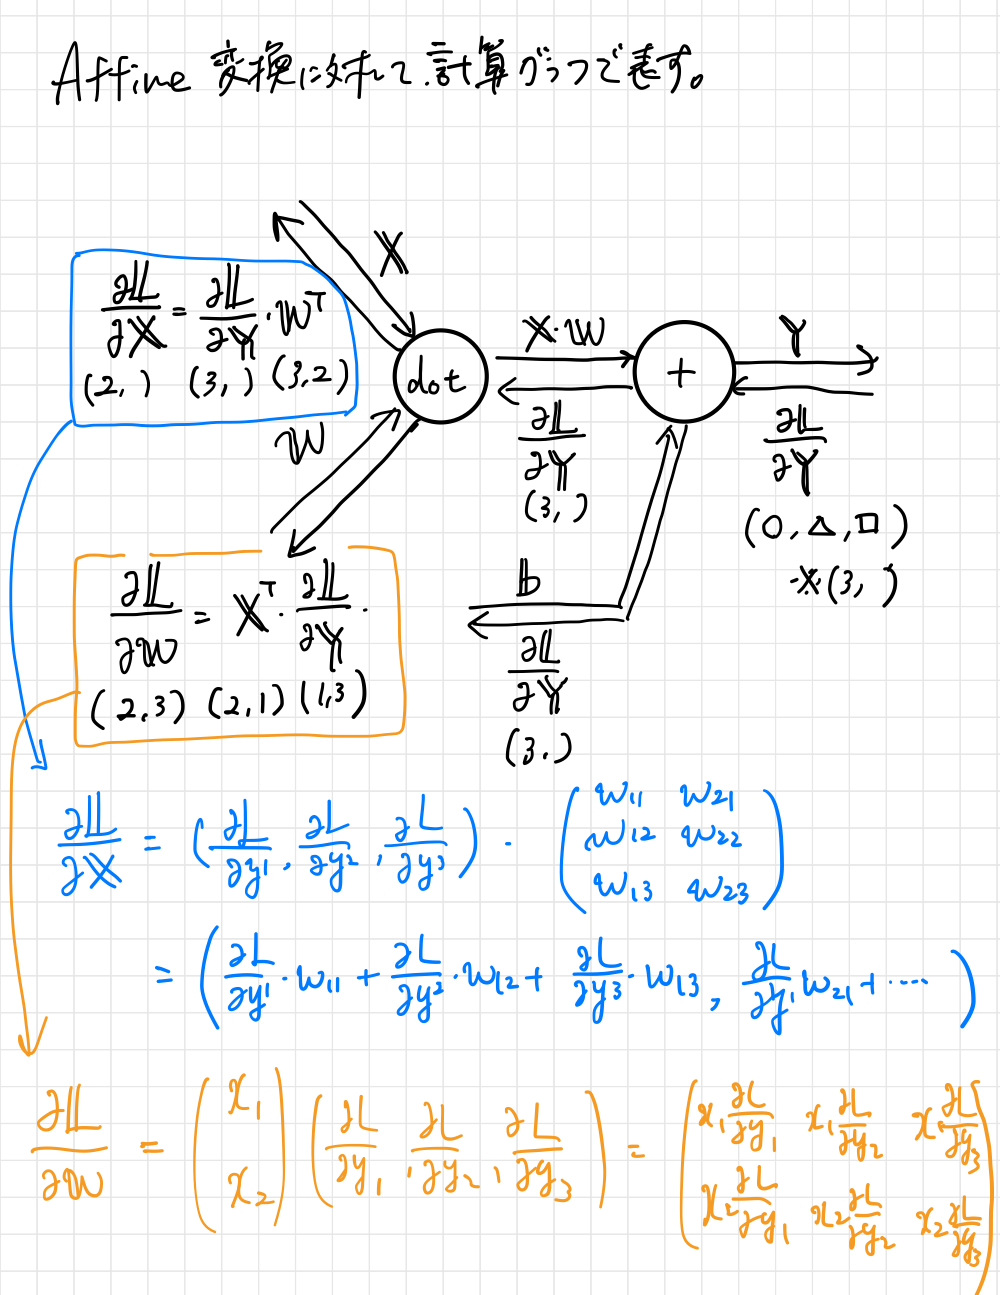 Affine 変換に対して計算グラフで表す。
X
∂L/∂X = ∂L/∂Y · W^T
(2, ) (3, ) (3,2)
X·W
Y
dot
+
W
∂L/∂Y
(3, )
∂L/∂Y
(○, △, □)
※(3, )
∂L/∂W = X^T · ∂L/∂Y ·
(2,3) (2,1) (1,3)
b
∂L/∂Y
(3, )
∂L/∂X = (∂L/∂y1, ∂L/∂y2, ∂L/∂y3) · (w11 w21
w12 w22
w13 w23)
= (∂L/∂y1 · w11 + ∂L/∂y2 · w12 + ∂L/∂y3 · w13, ∂L/∂y1 w21 + ‥‥)
∂L/∂W = (x1 x2) (∂L/∂y1, ∂L/∂y2, ∂L/∂y3) = (x1 ∂L/∂y1 x1 ∂L/∂y2 x1 ∂L/∂y3
x2 ∂L/∂y1 x2 ∂L/∂y2 x2 ∂L/∂y3)